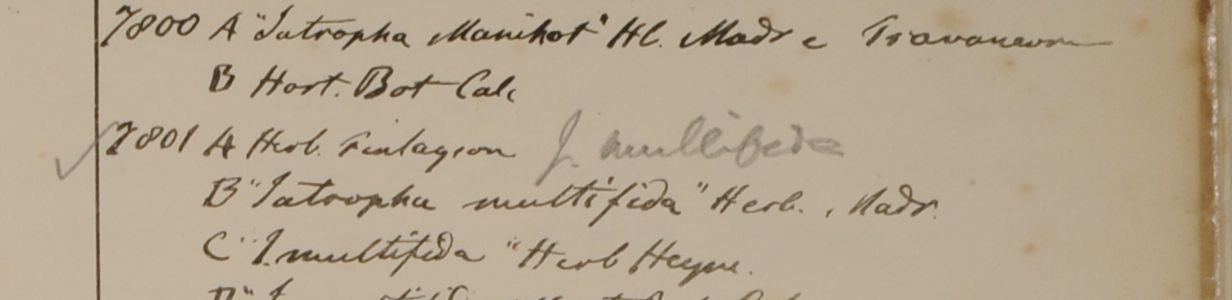 7800 A "Jatropha Manihot" Hb. Madr e Travancore
B Hort. Bot Calc
7801 A Herb. Finlayson J. multifida
B "Jatropha multifida" Herb. Madr.
C "J. multifida" Herb Heyne.